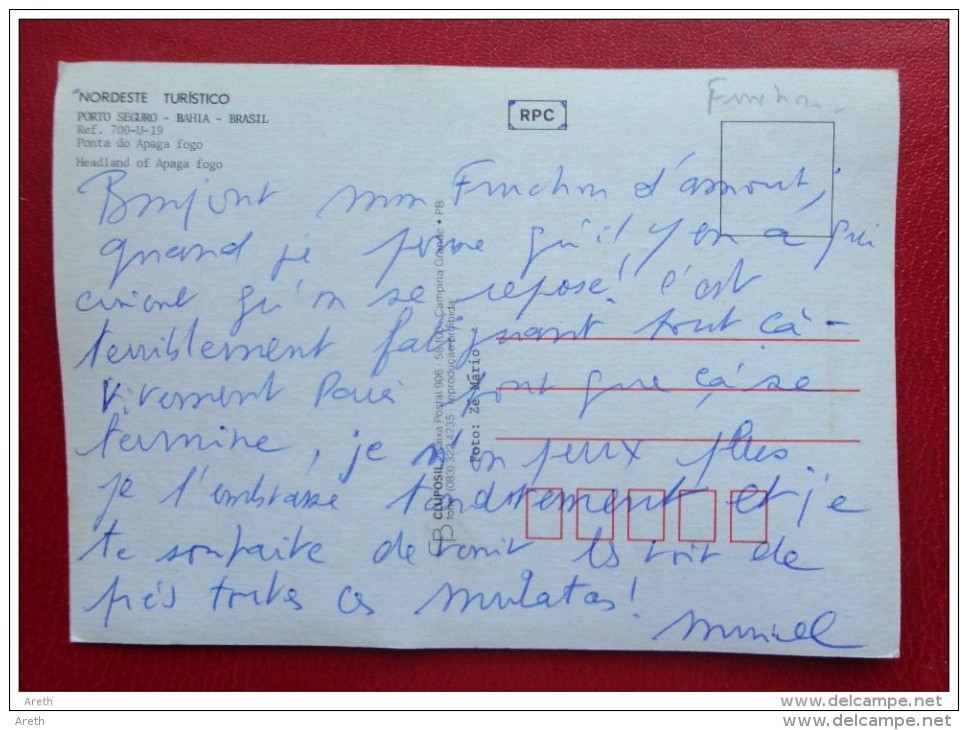 NORDESTE TURÍSTICO
PORTO SEGURO - BAHIA - BRASIL
Ref. 700-U-19
Ponta do Apaga fogo
Headland of Apaga fogo
RPC
Bonjour mon d'amour,
quand je pense qu'il y en a qui
croient qu'on se repose! C'est
terriblement fatiguant tout çà -
Vivement Paris que çà se
termine, je n'en peux plus.
je t'embrasse tendrement et je
te souhaite de venir les voir de
près toutes ces mulatas!
Muriel
CLIPOSIL Caixa Postal 906 - 58.100 - Campina Grande • PB
fone (083) 321.4235 - reprodução proibida
Foto: Zé Mário
Areth
Areth
http://www.delcampe.net
http://www.delcampe.net